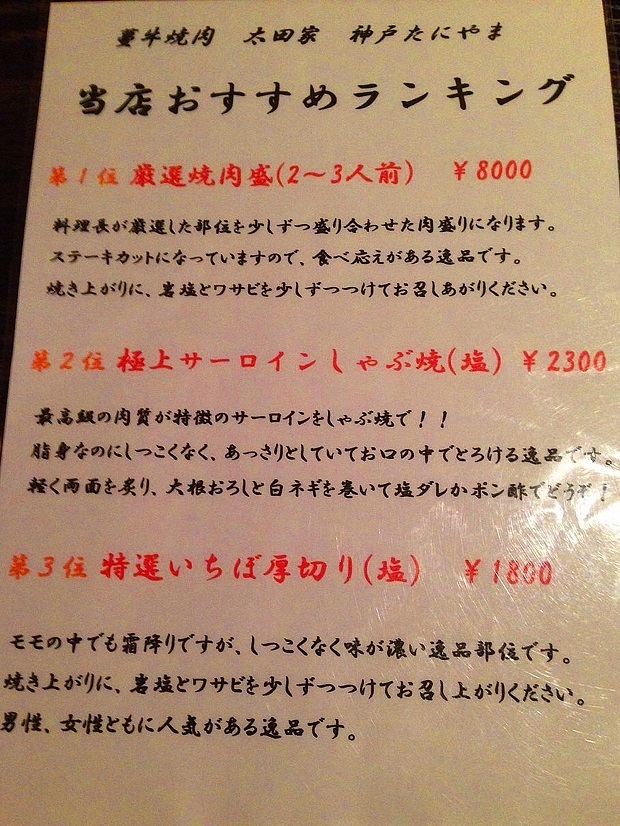 菫牛焼肉 太田家 神戸たにやま
当店おすすめランキング
第1位 厳選焼肉盛(2～3人前) ￥8000
料理長が厳選した部位を少しずつ盛り合わせた肉盛りになります。
ステーキカットになっていますので、食べ応えがある逸品です。
焼き上がりに、岩塩とワサビを少しずつつけてお召しあがりください。
第2位 極上サーロインしゃぶ焼(塩) ￥2300
最高級の肉質が特徴のサーロインをしゃぶ焼で！！
脂身なのにしつこくなく、あっさりとしていてお口の中でとろける逸品です。
軽く両面を炙り、大根おろしと白ネギを巻いて塩ダレかポン酢でどうぞ！
第3位 特選いちぼ厚切り(塩) ￥1800
モモの中でも霜降りですが、しつこくなく味が濃い逸品部位です。
焼き上がりに、岩塩とワサビを少しずつつけてお召し上がりください。
男性、女性ともに人気がある逸品です。